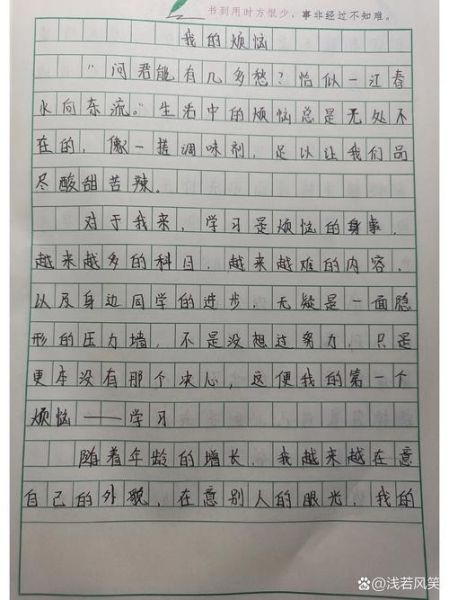 书到用时方恨少，事非经过不知难。
我的烦恼
"问君能有几多愁？恰似一江春
水向东流。"生活中的烦恼总是无处不
在的，像一搓调味剂，足以让我们品
尽酸甜苦辣。
对于我来，学习是烦恼的身事，
越来越多的科目，越来越难的内容，
以及身边同学的进步，无疑是一面隐
形的压力墙，不是没想过努力，只是
更本没有那个决心，这便我的第一个
烦恼——学习
随着年龄的增长，我越来越在意
自己的外貌，在意别人的眼光，我的
@浅若风笑